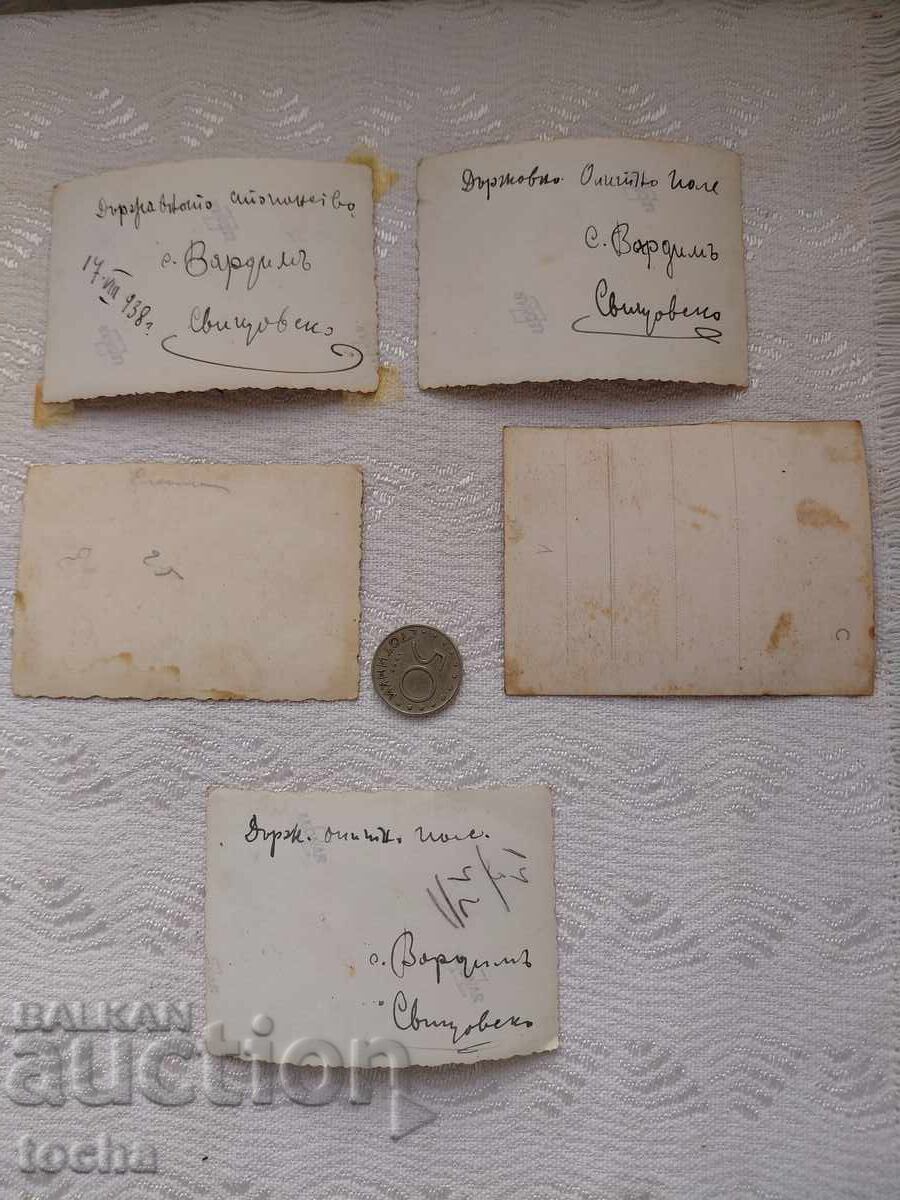 Държавното стопанство
с. Вардимъ
17. VIII 938 г.
Свищовско
Държовно Опитно Поле
с. Вардимъ
Свищовско
50
СТОТИНКИ
C
Държ. опитн. поле.
с. Вардимъ
Свищовско
BALKAN
auction
tocha